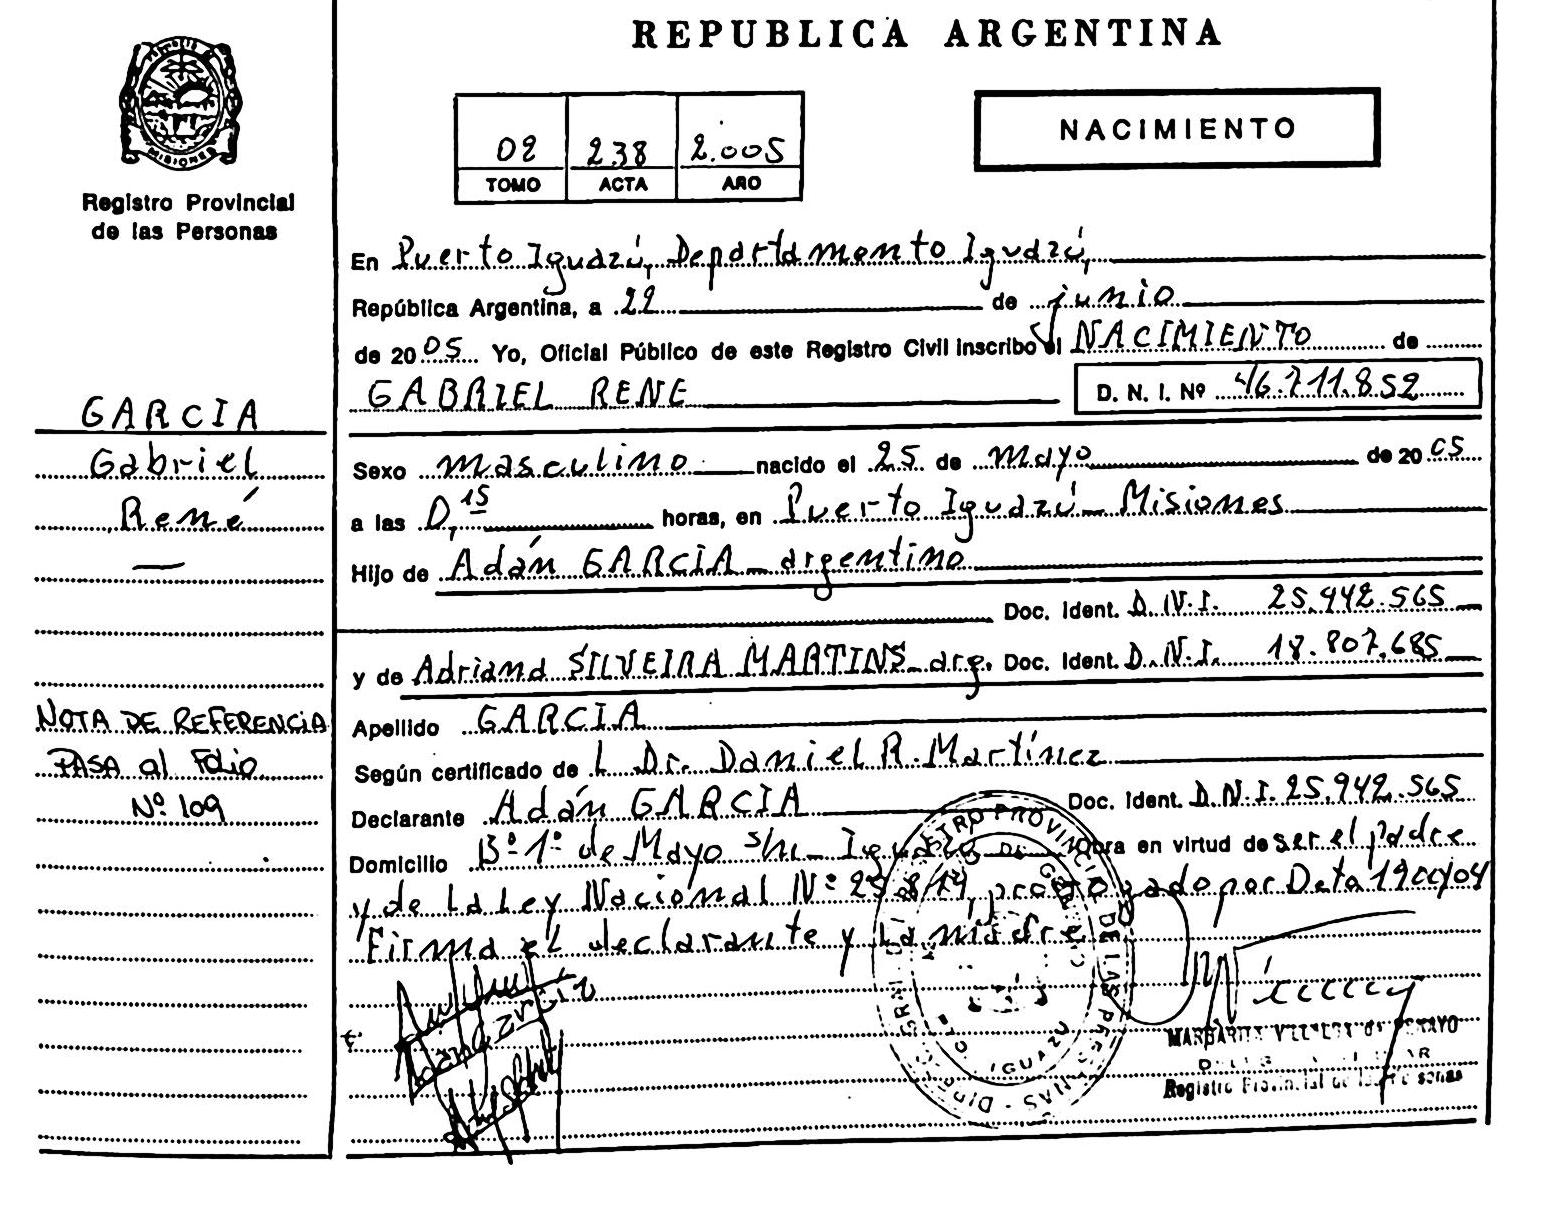 REPUBLICA ARGENTINA
MISIONES
Registro Provincial
de las Personas
02 238 2.005
TOMO ACTA AÑO
NACIMIENTO
En Puerto Iguazú, Departamento Iguazú,
República Argentina, a 22 de junio
de 2005 Yo, Oficial Público de este Registro Civil inscribo el NACIMIENTO de
GABRIEL RENE D. N. I. Nº 46.711.852
Sexo masculino nacido el 25 de mayo de 2005
a las 0,15 horas, en Puerto Iguazú - Misiones
Hijo de Adán GARCIA - argentino
Doc. Ident. D.N.I. 25.942.565
y de Adriana SILVEIRA MARTINS - arg. Doc. Ident. D.N.I. 18.807.685
Apellido GARCIA
Según certificado de l Dr. Daniel R. Martínez
Declarante Adán GARCIA Doc. Ident. D.N.I. 25.942.565
Domicilio Bº 1º de Mayo s/n - Iguazú Obra en virtud de ser el padre
y de La Ley Nacional Nº 25.819 prorrogado por Dcto 19
Firma el declarante y la madre
GARCIA
Gabriel
René
—
NOTA DE REFERENCIA
PASA al Folio
Nº 109
REGISTRO PROVINCIAL DE LAS PERSONAS
IGUAZU
MARGARITA
Registro Provincial de las Personas